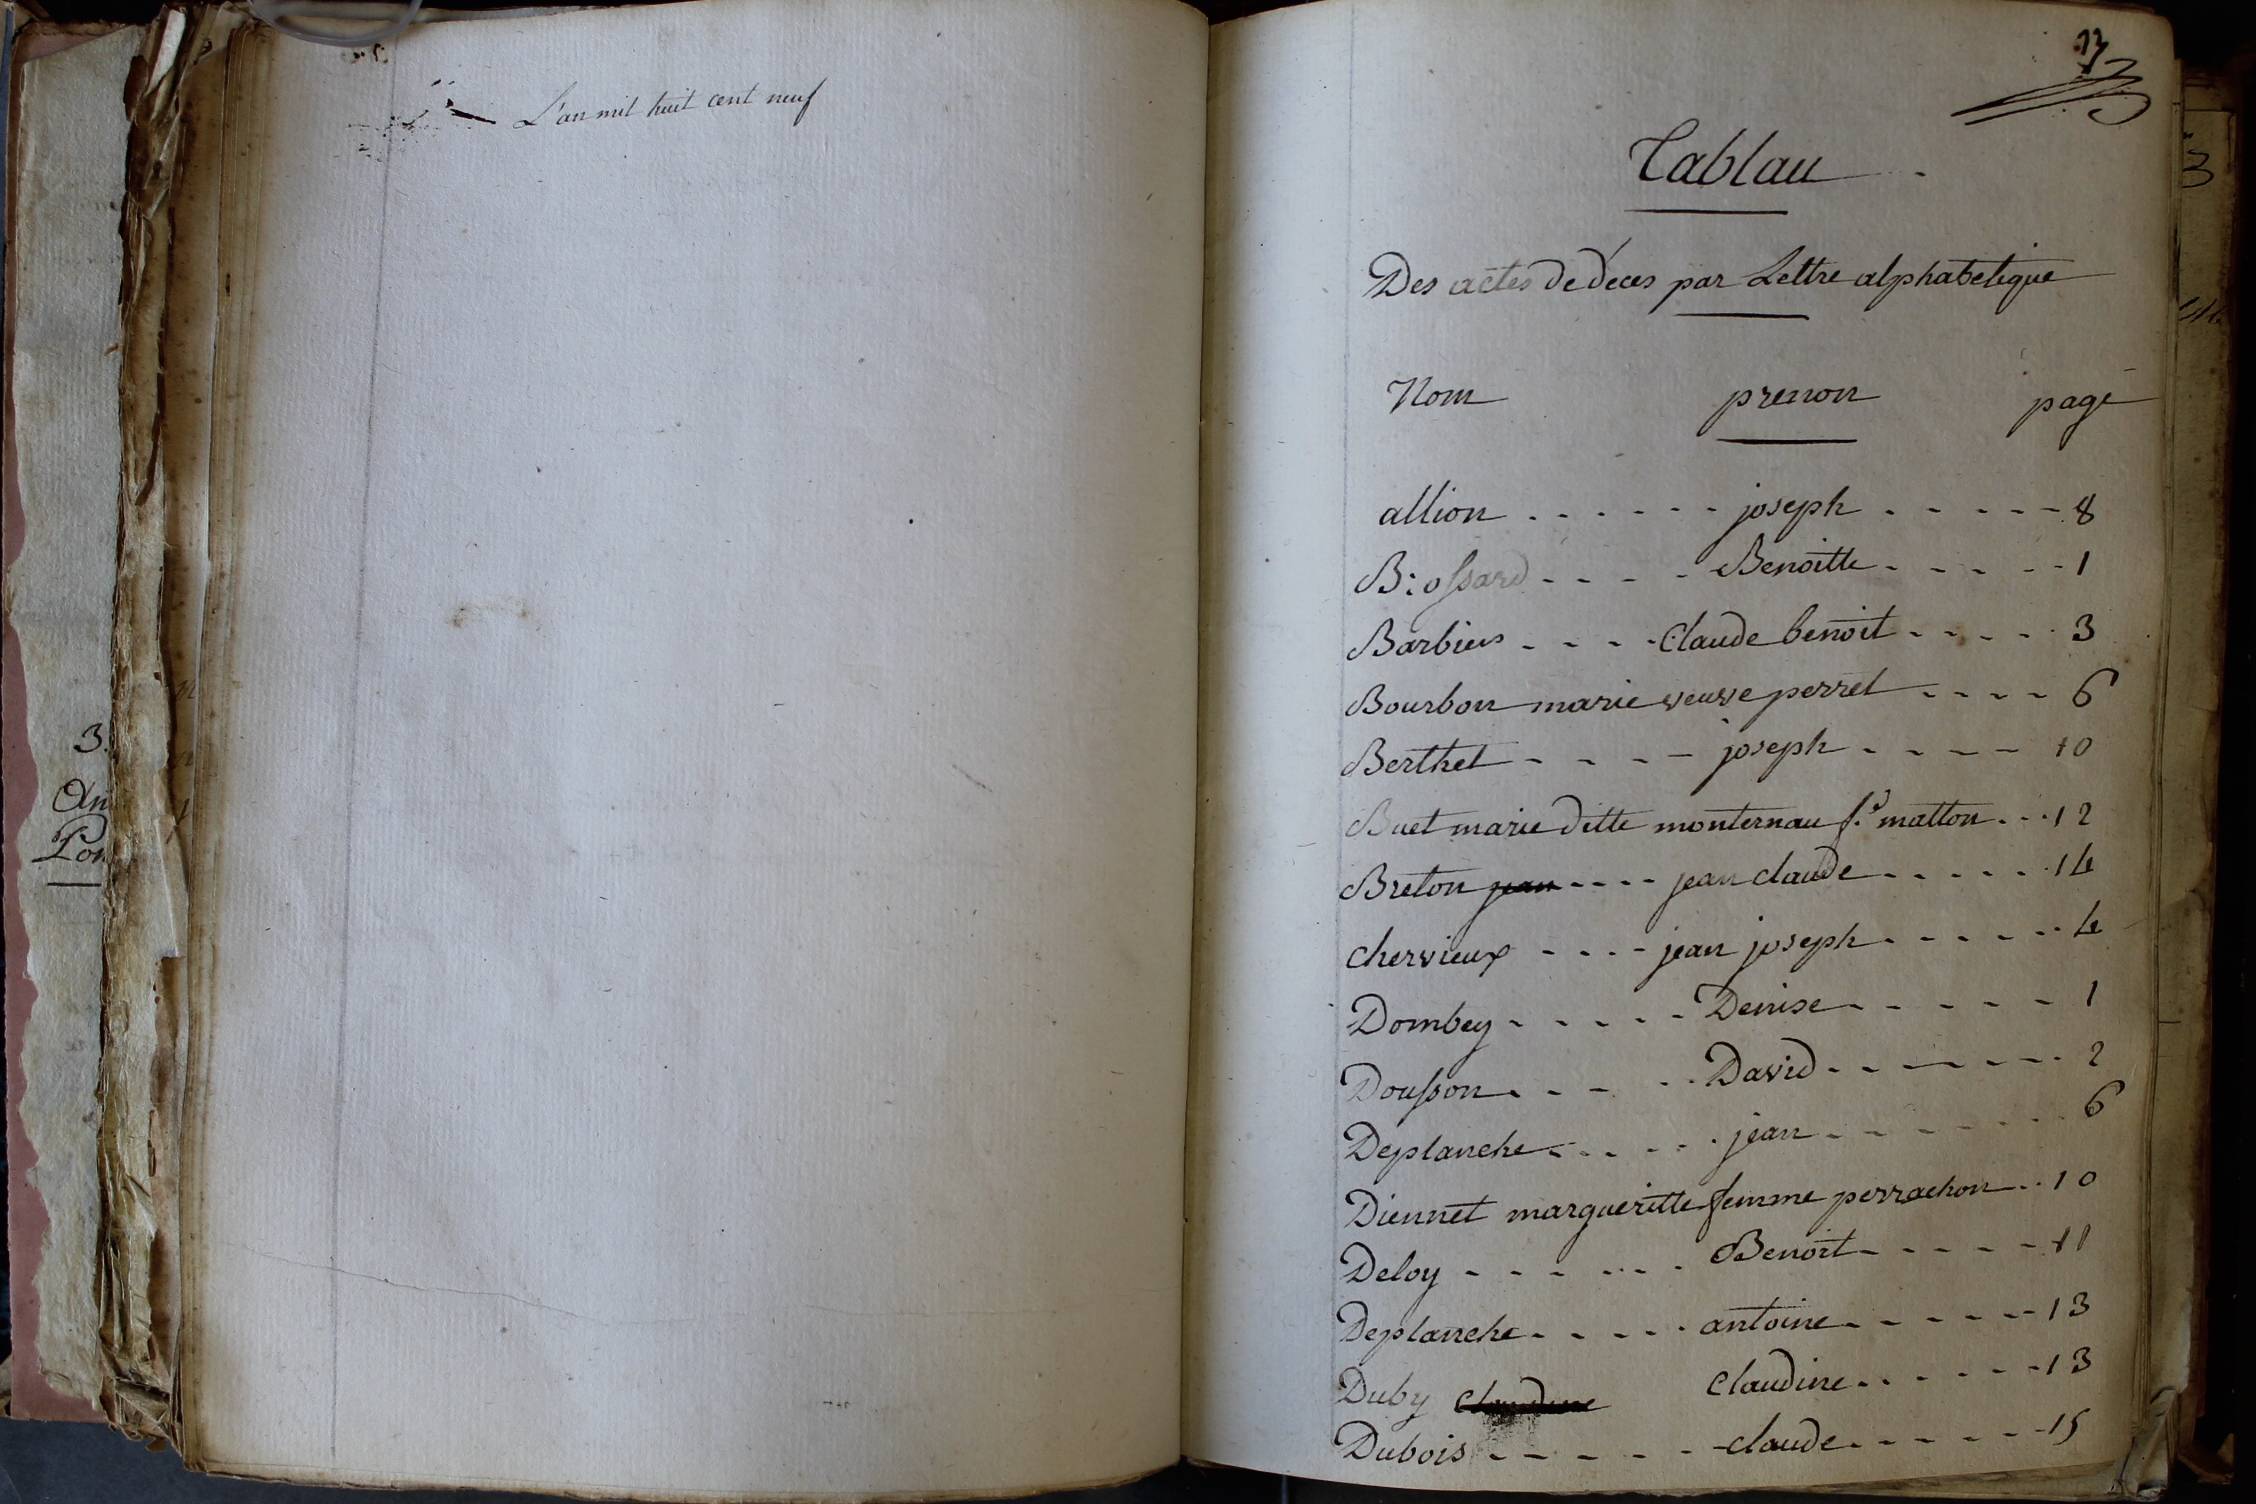 L'an mil huit cent neuf
3.
An
Pon
Tablau
Des actes de déces par Lettre alphabetique
Nom prenon page
allion joseph 8
Brossard Benoitte 1
Barbier Claude benoit 3
Bourbon marie veuve perret 6
Berthet joseph 10
Buet marie ditte monternau f.e matton 12
Breton jean jean claude 14
chervieux jean joseph 4
Dombey Denise 1
Dousson David 2
Deplanche jean 6
Diennet margueritte femme perrachon 10
Deloy Benoit 11
Deplanche antoine 13
Duby Claudine Claudine 13
Dubois claude 15